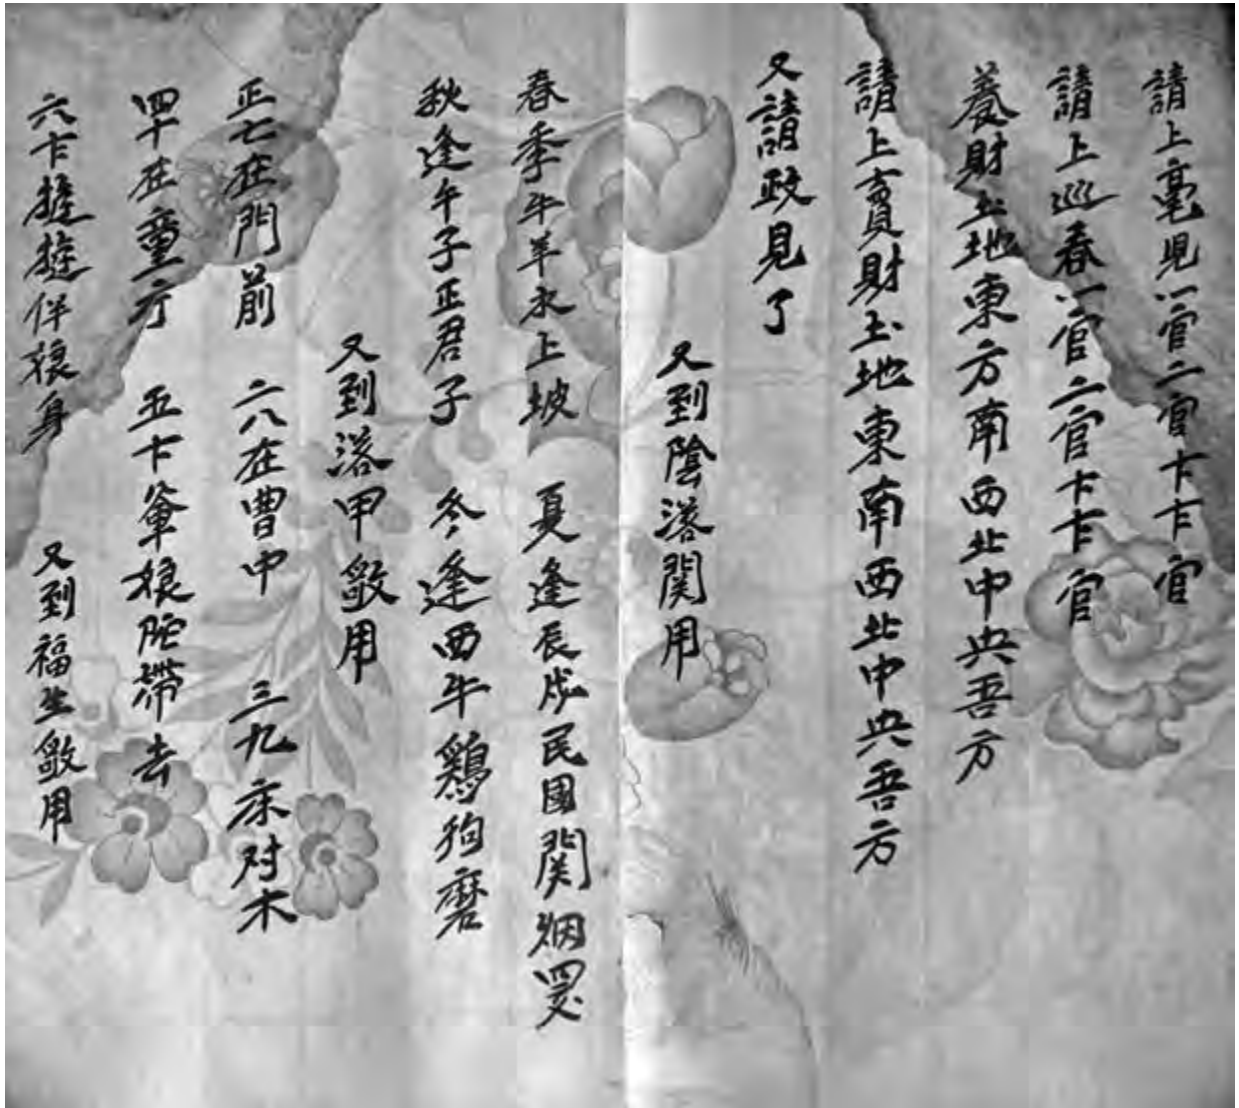 請上毫見一官二官卡卡官
請上巡春一官二官卡卡官
養財土地東方南西北中央吾方
請上賣財土地東南西北中央吾方
又請政見了
又到陰落関用
春季牛羊水上坡 夏逢辰戍民國関烟
秋逢午子正君子 冬逢西牛鷄狗磨
又到落甲敬用
正七在門前 二八在曹中 三九床対木
四十在童方 五卡爺娘陀帶去
六卡伴娘身 又到福生敬用